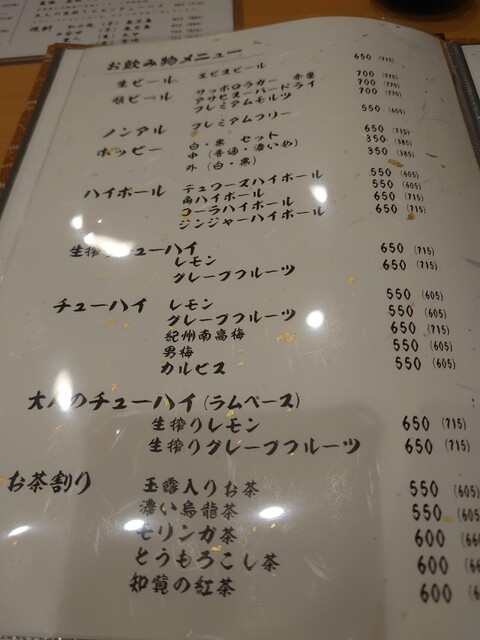 お飲み物メニュー
生ビール ヱビスビール 650 (715)
瓶ビール サッポロラガー 赤星 700 (770)
アサヒスーパードライ 700 (770)
プレミアムモルツ 700 (770)
ノンアル プレミアムフリー 550 (605)
ホッピー 白・黒 セット 650 (715)
中 (普通・濃いめ) 350 (385)
外 (白・黒) 350 (385)
ハイボール デュワーズハイボール 550 (605)
角ハイボール 550 (605)
コーラハイボール 650 (715)
ジンジャーハイボール 650 (715)
生搾りチューハイ
レモン 650 (715)
グレープフルーツ 650 (715)
チューハイ レモン 550 (605)
グレープフルーツ 550 (605)
紀州南高梅 650 (715)
男梅 550 (605)
カルピス 550 (605)
大人のチューハイ (ラムベース)
生搾りレモン 650 (715)
生搾りグレープフルーツ 650 (715)
お茶割り 玉露入りお茶 550 (605)
濃い烏龍茶 550 (605)
モリンガ茶 600 (66
とうもろこし茶 600 (66
知覧の紅茶 600 (66